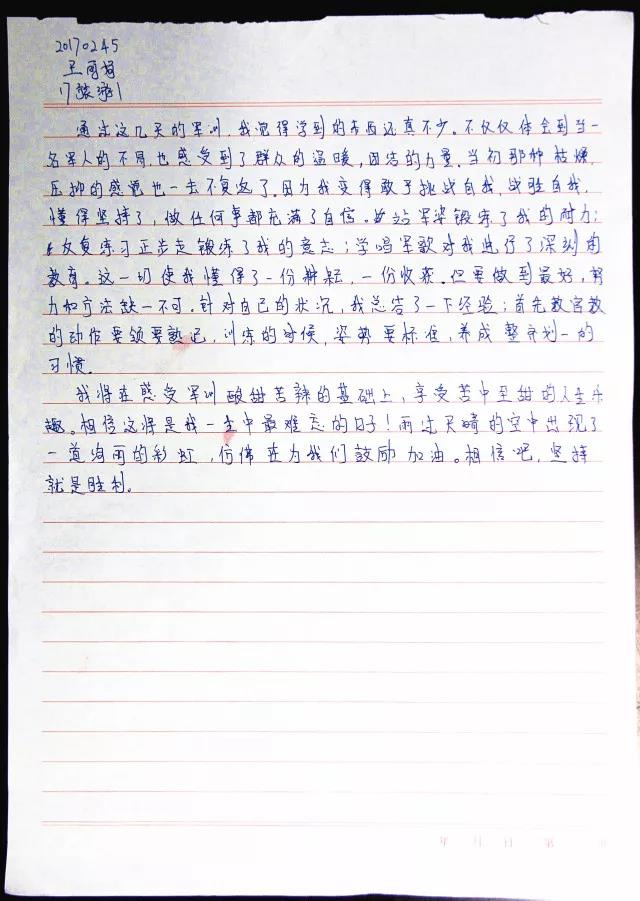 20170245
王丽
17旅游1
通过这几天的军训,我觉得学到的东西还真不少。不仅仅体会到当一
名军人的不易,也感受到了群众的温暖,团结的力量。当初那种枯燥,
压抑的感觉也一去不复返了。因为我变得敢于挑战自我,战胜自我,
懂得坚持了,做任何事都充满了自信。站军姿锻练了我的耐力;
反复练习正步走锻练了我的意志;学唱军歌对我进行了深刻的
教育。这一切使我懂得了一份耕耘,一份收获。但要做到最好,努
力和方法缺一不可。针对自己的状况,我总结了一下经验;首先教官教
的动作要领要熟记,训练的时候,姿势要标准,养成整齐划一的
习惯。
我将在感受军训酸甜苦辣的基础上,享受苦中至甜的人生乐
趣。相信这将是我一生中最难忘的日子!雨过天晴的空中出现了
一道绚丽的彩虹,仿佛在为我们鼓励加油。相信吧,坚持
就是胜利。
年 月 日 第